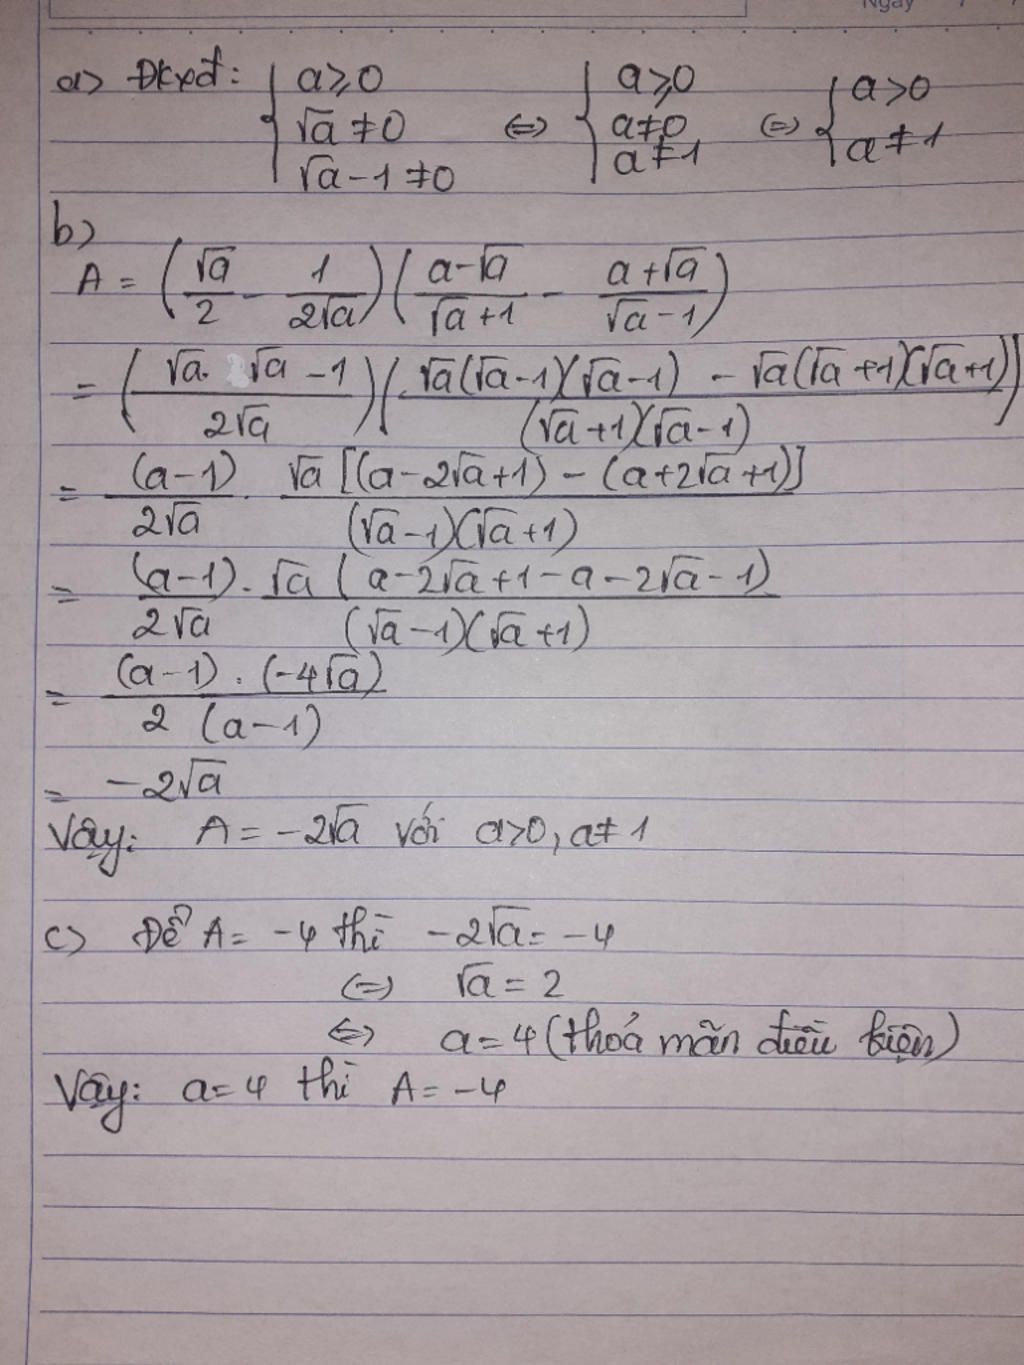 Ngày
a) Đkxđ: { a ≥ 0 ; √a ≠ 0 ; √a - 1 ≠ 0 ⇔ { a ≥ 0 ; a ≠ 0 ; a ≠ 1 ⇔ { a > 0 ; a ≠ 1
b)
A = (√a/2 - 1/2√a)((a-√a)/(√a+1) - (a+√a)/(√a-1))
= ((√a. √a - 1)/2√a)((√a(√a-1)(√a-1) - √a(√a+1)(√a+1))/((√a+1)(√a-1)))
= (a-1)/2√a . √a[(a-2√a+1) - (a+2√a+1)]/((√a-1)(√a+1))
= (a-1)/2√a . √a(a-2√a+1-a-2√a-1)/((√a-1)(√a+1))
= (a-1).(-4√a)/(2(a-1))
= -2√a
Vậy: A = -2√a với a>0, a≠1
c) Để A = -4 thì -2√a = -4
⇔ √a = 2
⇔ a = 4 (thoả mãn điều kiện)
Vậy: a = 4 thì A = -4